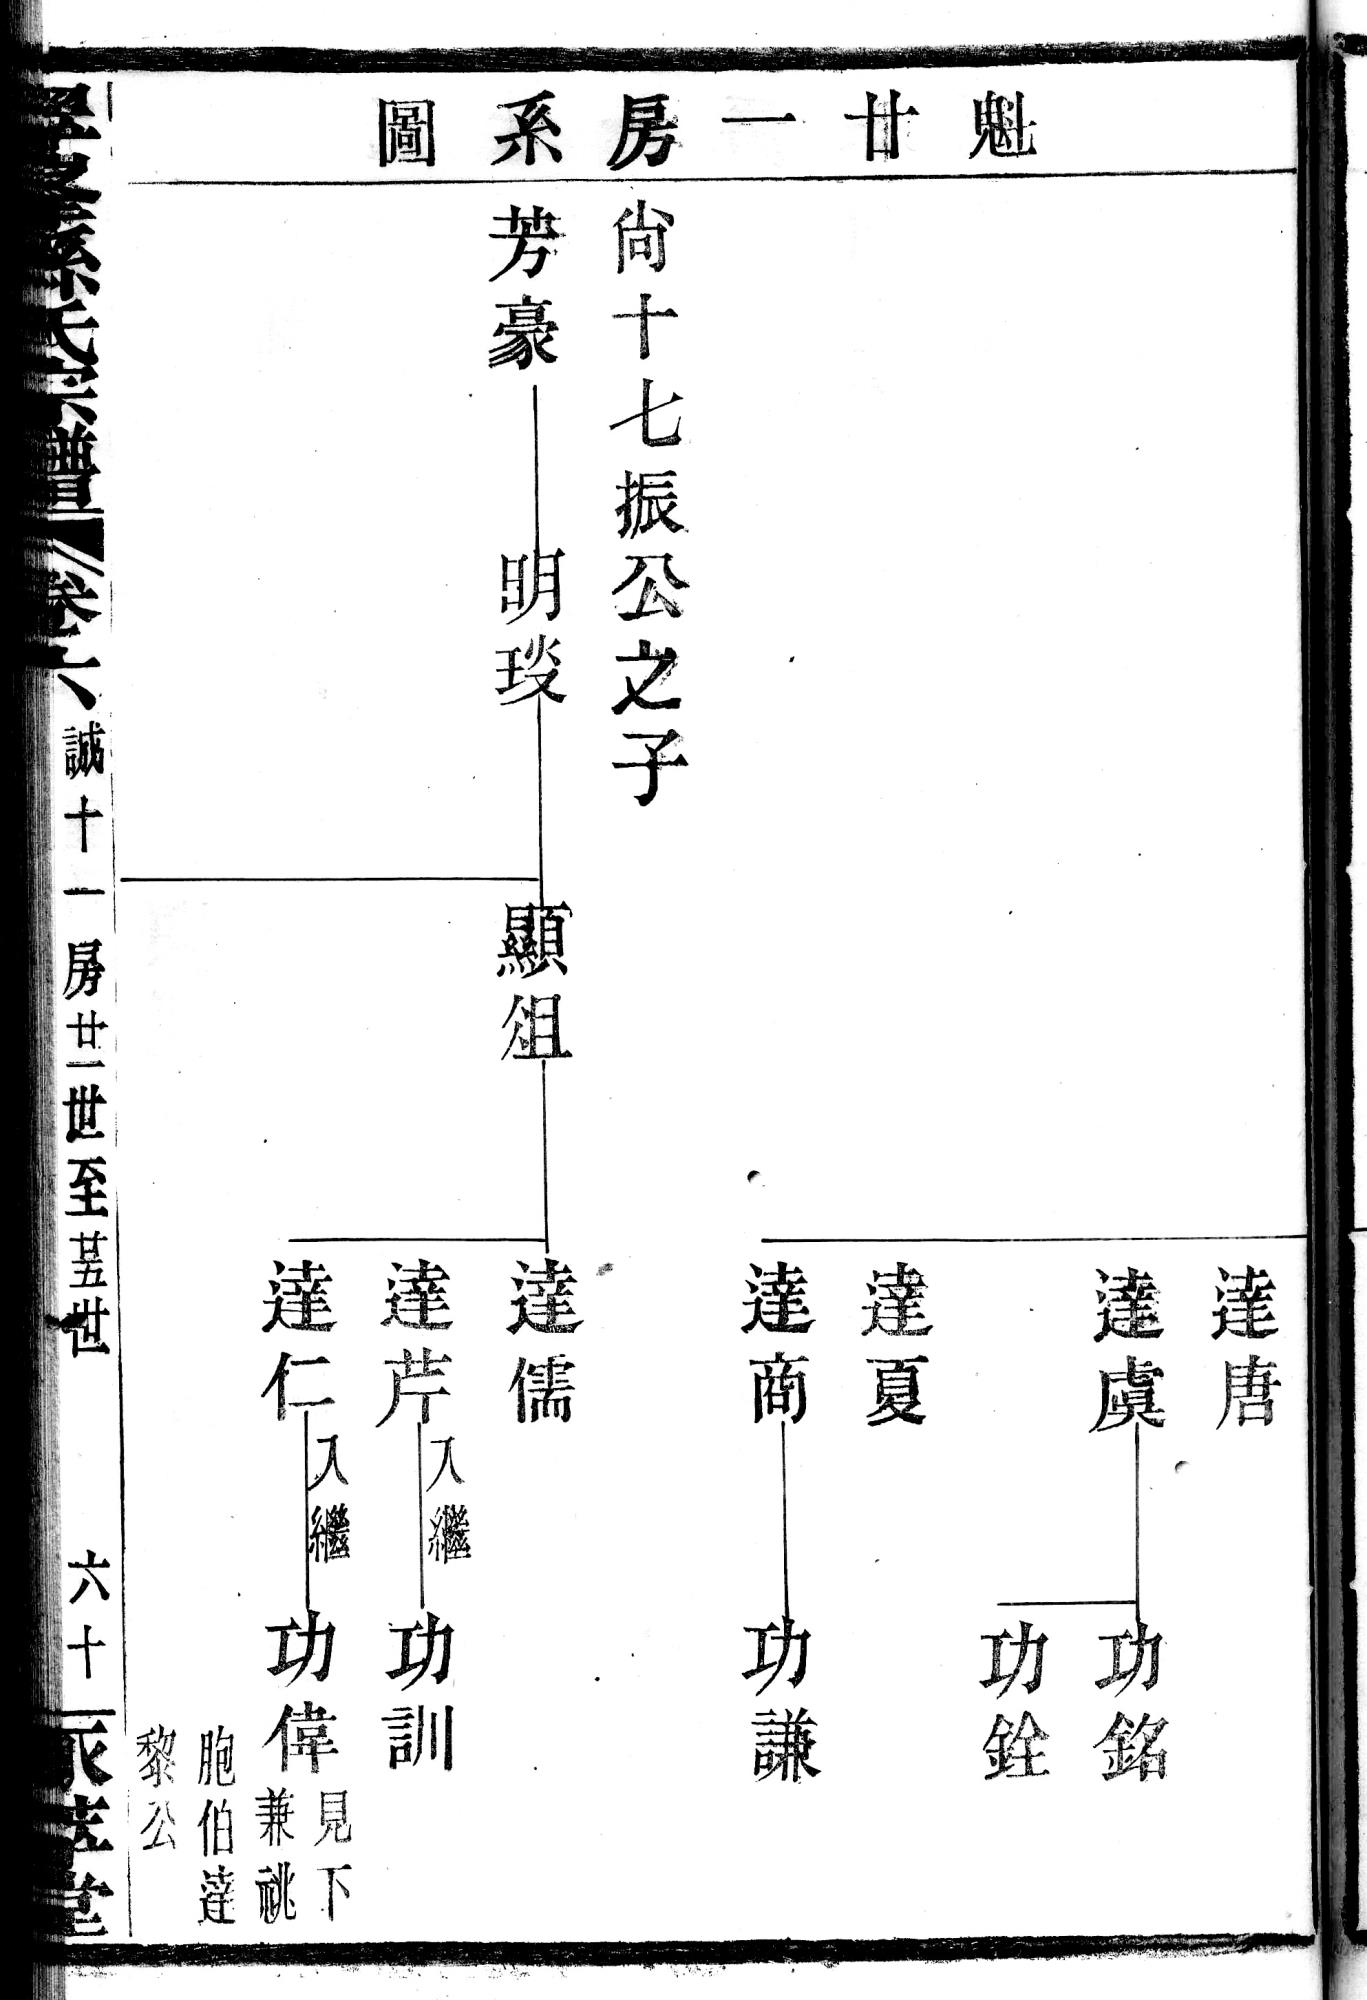 魁廿一房系圖
達唐
達虞
功銘
功銓
達夏
達商
功謙
尙十七振公之子
芳豪
明琰
顯俎
達儒
達芹
入繼
功訓
達仁
入繼
功偉
見下
兼祧
胞伯達
黎公
孫氏宗譜
卷六
誠十一房廿一世至廿五世
六十
堂